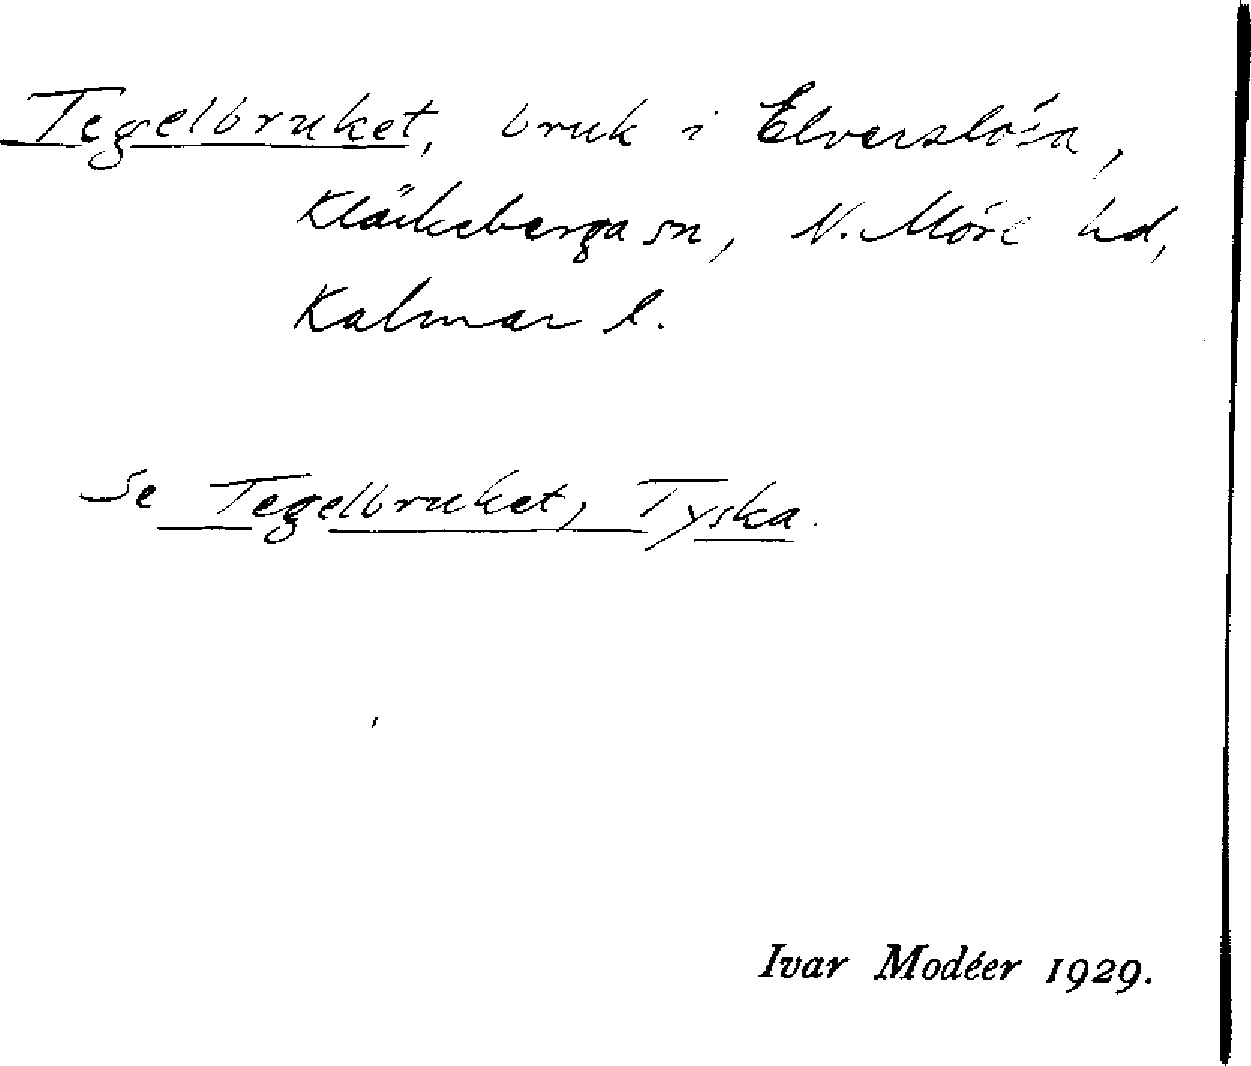 Tegelbruket, bruk i Elverslösa,
Kläckeberga sn, N. Möre hd,
Kalmar l.
Se Tegelbruket, Tyska.
Ivar Modéer 1929.